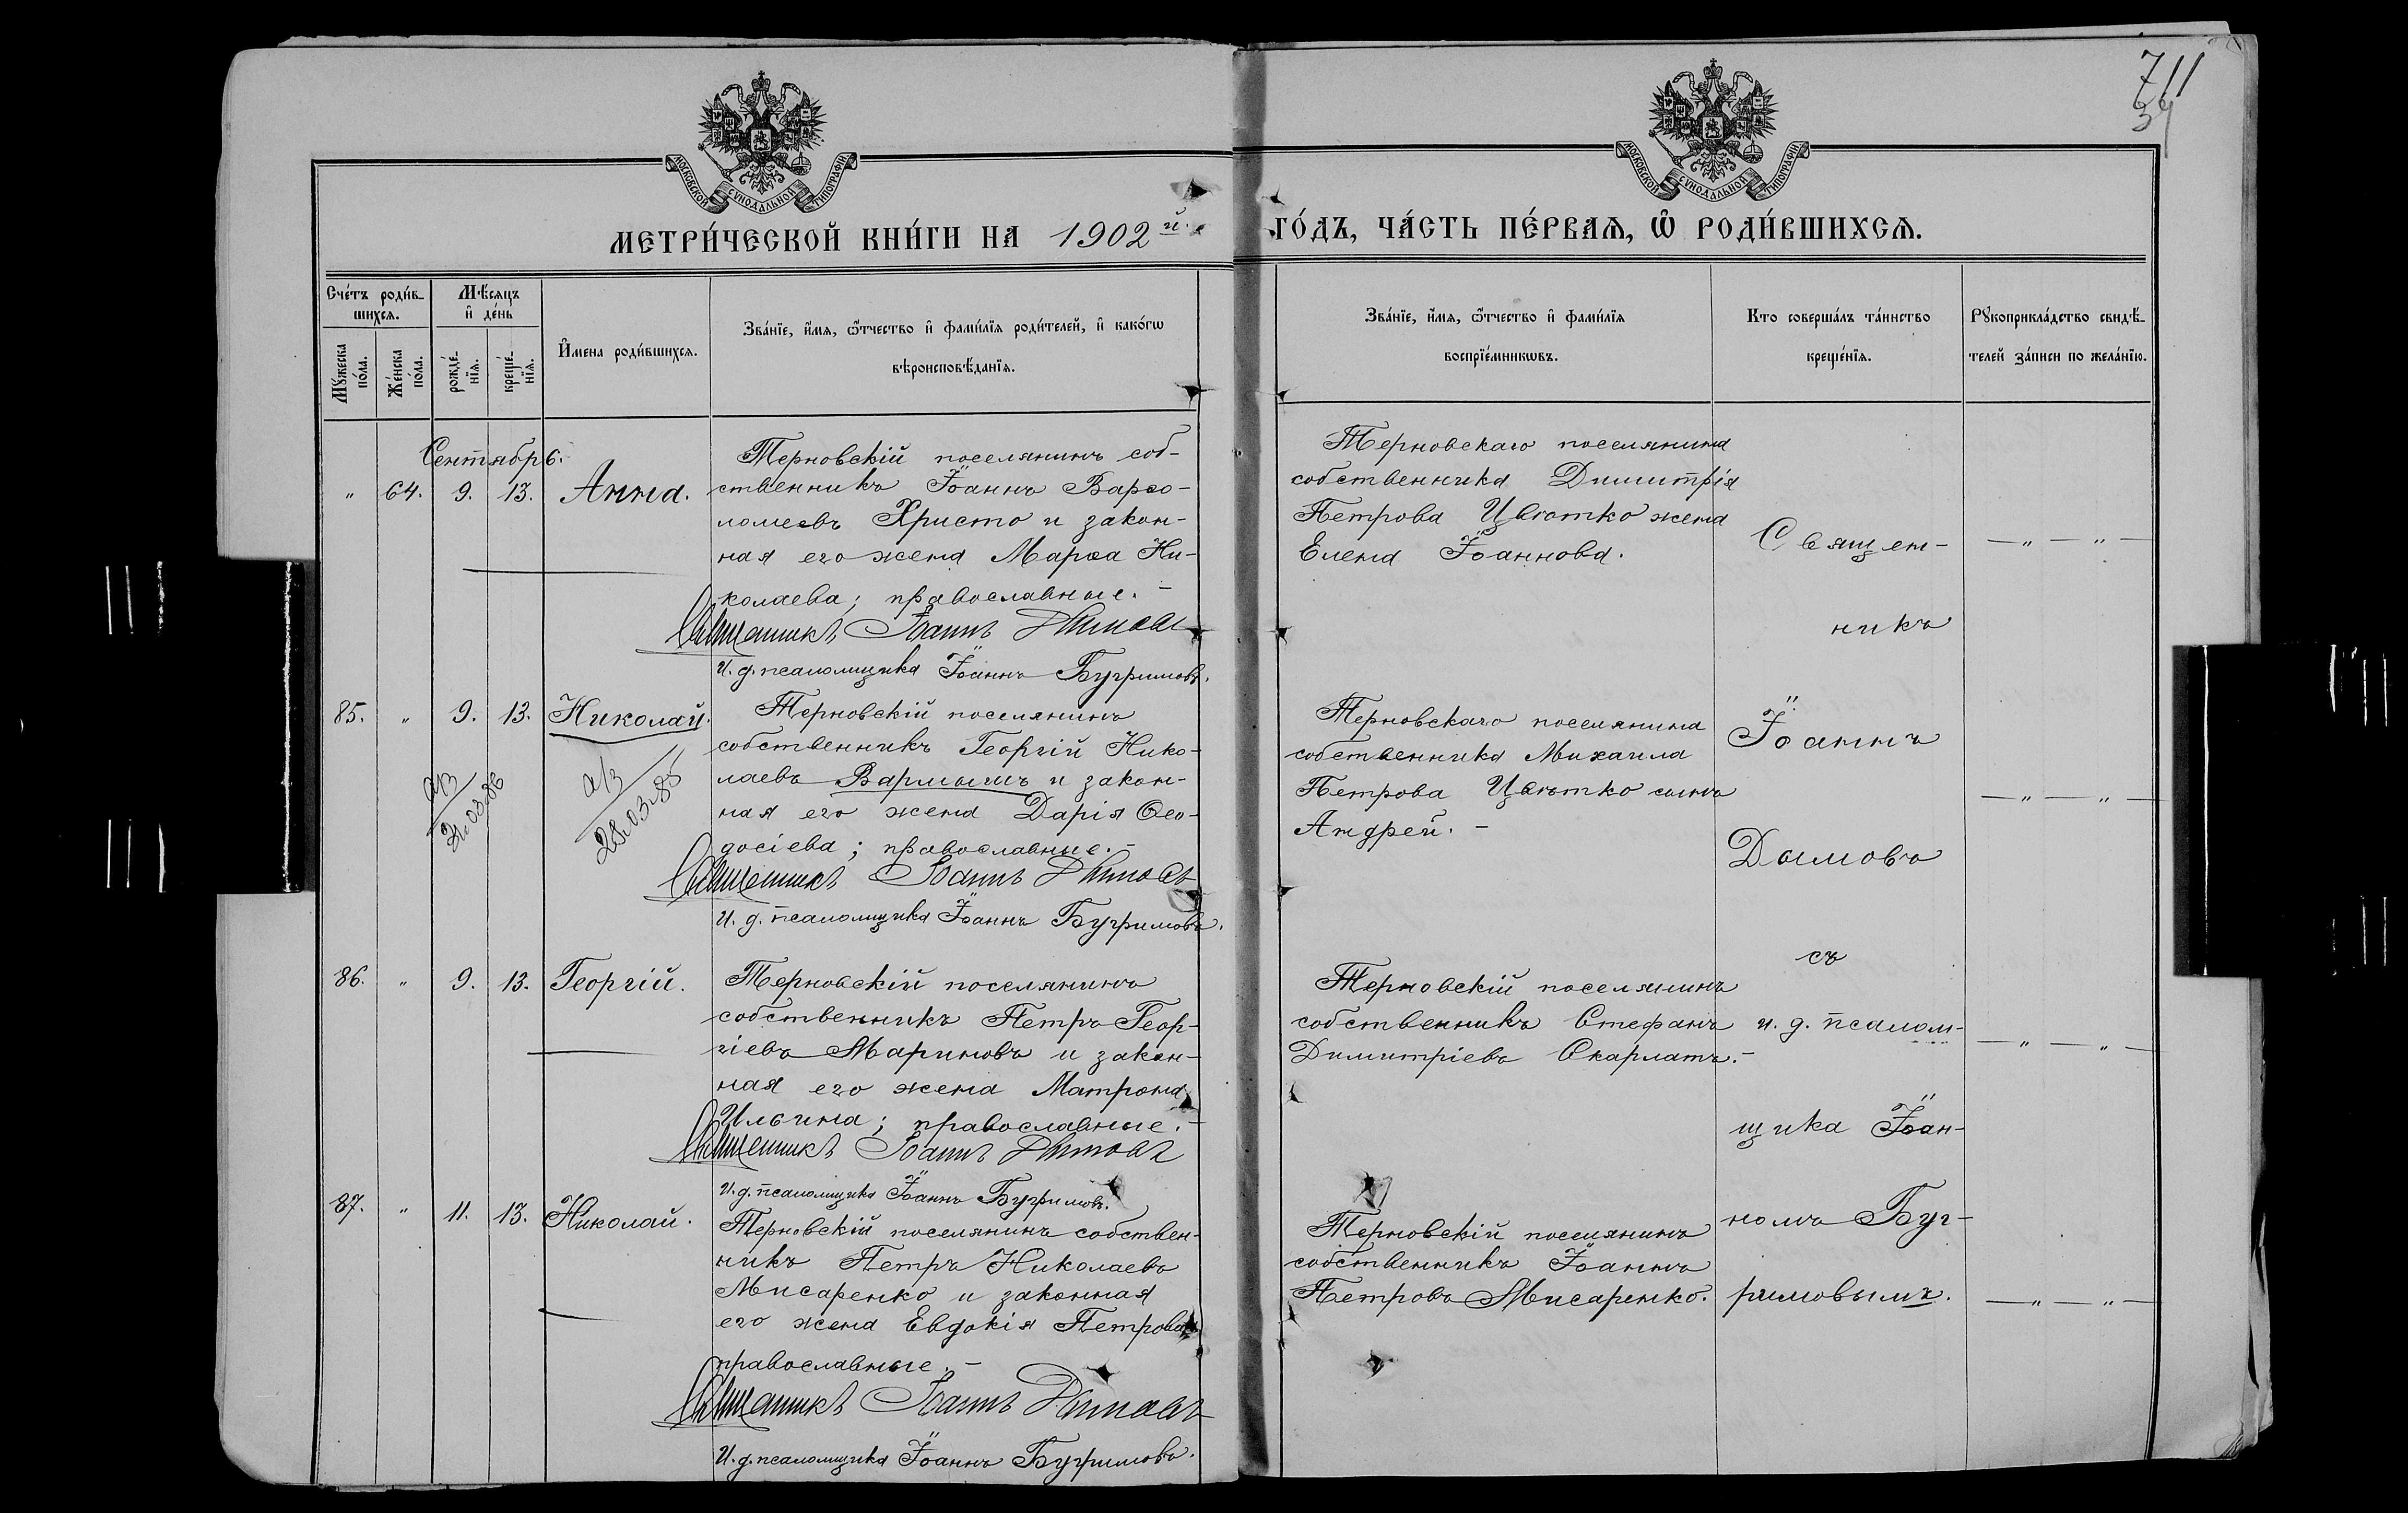 711
39
МОСКОВСКОЙ СѴНОДАЛЬНОЙ ТИПОГРАФІИ
МОСКОВСКОЙ СѴНОДАЛЬНОЙ ТИПОГРАФІИ
МЕТРИ́ЧЕСКОЙ КНИ́ГИ НА 1902й.
ГО́ДЪ, ЧА́СТЬ ПЕ́РВАѦ, Ѽ РОДИ́ВШИХСѦ.
Сче́тъ роди́в-
шихсѧ.
Мꙋ́жеска
по́ла.
Же́нска
по́ла.
Мѣ́сѧцъ
и҆ де́нь
рожде́-
нїѧ.
креще́-
нїѧ.
И҆мена роди́вшихсѧ.
Зва́нїе, и҆́мѧ, ѻ҆́тчество и҆ фами́лїѧ роди́телей, и҆ како́гѡ
вѣроисповѣ́данїѧ.
Зва́нїе, и҆́мѧ, ѻ҆́тчество и҆ фами́лїѧ
воспрїе́мникѡвъ.
Кто соверша́лъ та́инство
креще́нїѧ.
Рꙋкоприкла́дство свидѣ́-
телей за́писи по жела́нїю.
Сентябрь.
" 64. 9. 13. Анна.
Терновскій поселянинъ соб-
ственникъ Іоаннъ Варѳо-
ломеевъ Христо и закон-
ная его жена Марѳа Ни-
колаева; православные. -
Священникъ Іоаннъ Дымовъ
И. д. псаломщика Іоаннъ Бугримовъ.
Терновскаго поселянина
собственника Димитрія
Петрова Цвѣтко жена
Елена Іоаннова.
— " — " —
85. " 9. 13. Николай.
Терновскій поселянинъ
собственникъ Георгій Нико-
лаевъ Вармышъ и закон-
ная его жена Дарія Ѳео-
досіева; православные. -
Священникъ Іоаннъ Дымовъ
И. д. псаломщика Іоаннъ Бугримовъ.
28.03.85
Терновскаго поселянина
собственника Михаила
Петрова Цвѣтко сынъ
Андрей. -
— " — " —
86. " 9. 13. Георгій.
Терновскій поселянинъ
собственникъ Петръ Геор-
гіевъ Мариновъ и закон-
ная его жена Матрона
Ильина; православные. -
Священникъ Іоаннъ Дымовъ
И. д. псаломщика Іоаннъ Бугримовъ.
Терновскій поселянинъ
собственникъ Стефанъ
Димитріевъ Скарлатъ. -
— " — " —
87. " 11. 13. Николай.
Терновскій поселянинъ собствен-
никъ Петръ Николаевъ
Мисаренко и законная
его жена Евдокія Петрова
православные. -
Священникъ Іоаннъ Дымовъ
И. д. псаломщика Іоаннъ Бугримовъ.
Терновскій поселянинъ
собственникъ Іоаннъ
Петровъ Мисаренко.
— " — " —
Священ-
никъ
Іоаннъ
Дымовъ
съ
и. д. псалом-
щика Іоан-
номъ Буг-
римовымъ.